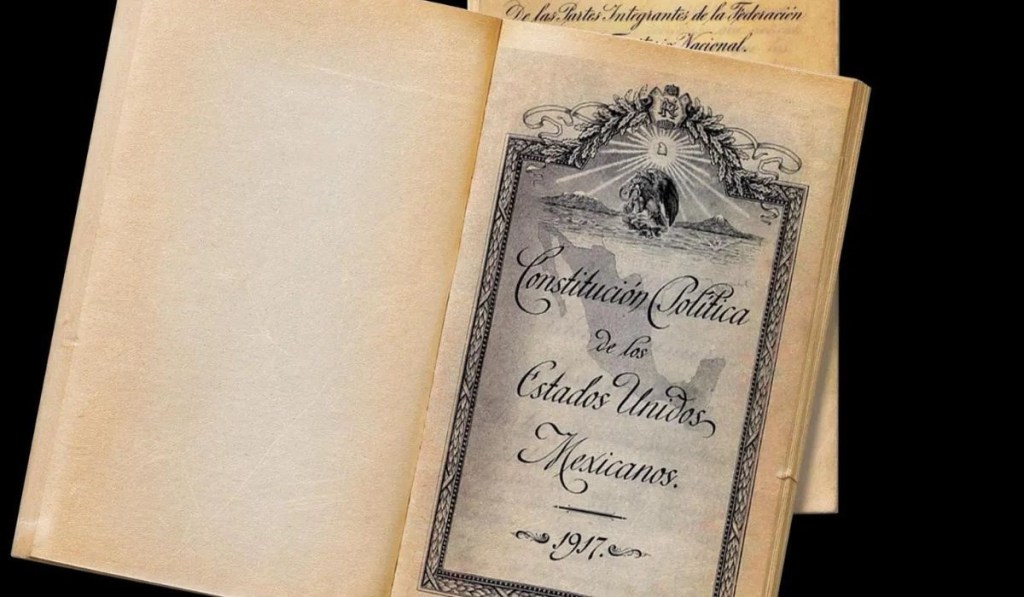 De las Partes Integrantes de la Federación
Nacional.
Constitución Política
de los
Estados Unidos
Mexicanos.
1917.